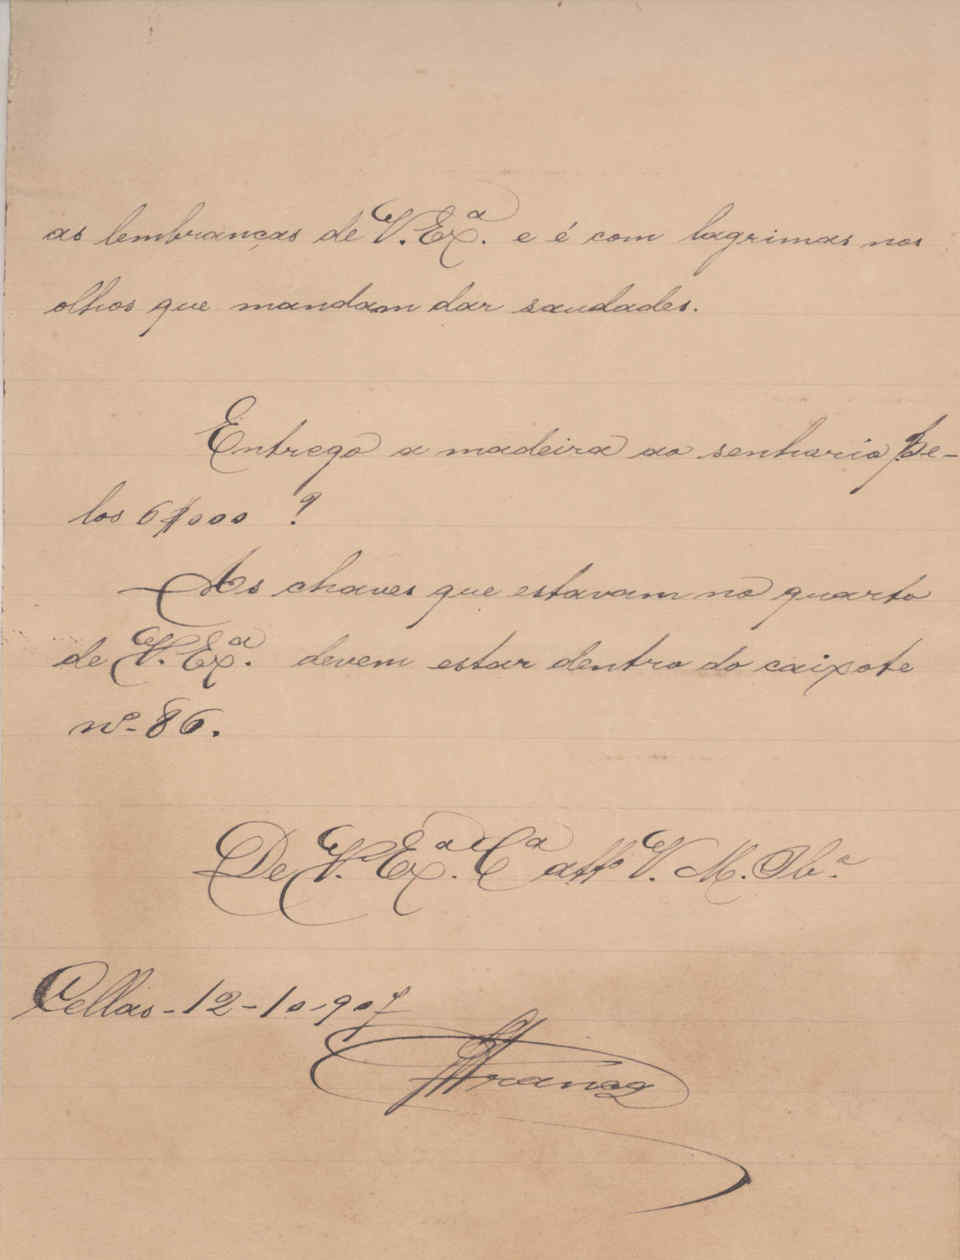 as lembranças de V. Exª. e é com lagrimas nos
olhos que mandam dar saudades.
Entrego a madeira ao senhorio pe-
los 6$000 ?
As chaves que estavam no quarto
de V. Exª. devem estar dentro do caixote
nº- 86.
De V. Exª. Cª attº V. M. Obº.
Cellas - 12 - 10 - 907